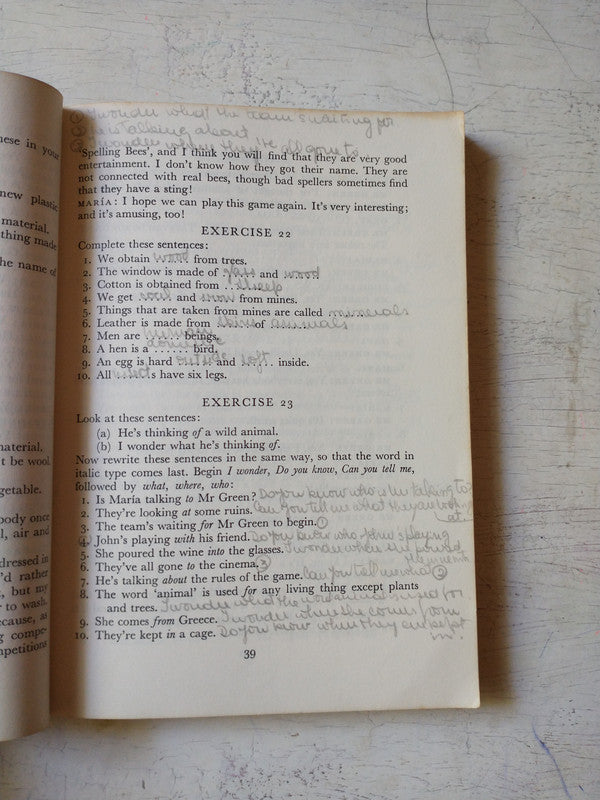 hese in your
new plastic
material.
thing made
he name of
naterial.
t be wool
getable.
body once
l, air and
dressed in
'd rather
, but my
to wash.
ecause, as
g compe-
npetitions
I wonder what the team's waiting for
he's talking about
I wonder where they've all gone to
'Spelling Bees', and I think you will find that they are very good
entertainment. I don't know how they got their name. They are
not connected with real bees, though bad spellers sometimes find
that they have a sting!
MARÍA: I hope we can play this game again. It's very interesting;
and it's amusing, too!
EXERCISE 22
Complete these sentences:
1. We obtain wood from trees.
2. The window is made of glass and wood
3. Cotton is obtained from ..
4. We get coal and iron from mines.
5. Things that are taken from mines are called minerals
6. Leather is made from skins of animals
7. Men are human beings.
8. A hen is a domestic bird.
9. An egg is hard outside and soft inside.
10. All insects have six legs.
EXERCISE 23
Look at these sentences:
(a) He's thinking of a wild animal.
(b) I wonder what he's thinking of.
Now rewrite these sentences in the same way, so that the word in
italic type comes last. Begin I wonder, Do you know, Can you tell me,
followed by what, where, who:
1. Is María talking to Mr Green? Do you know who is she talking to?
2. They're looking at some ruins. Can you tell me what they are looking at
3. The team's waiting for Mr Green to begin. 1
4. John's playing with his friend. Do you know who John's playing
5. She poured the wine into the glasses. I wonder where she poured
the wine in
6. They've all gone to the cinema. 3
7. He's talking about the rules of the game. Can you tell me what 2
8. The word 'animal' is used for any living thing except plants
and trees. I wonder what the word animal is used for
9. She comes from Greece. I wonder where she comes from
10. They're kept in a cage. Do you know where they are kept
in.
39